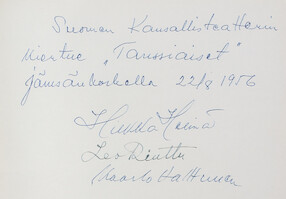 Suomen Kansallisteatterin
kiertue „Tanssiaiset"
Jämsänkoskella 22/8 1956
Hukka Heinä
Leo Riuttu
Kaarlo Halttunen